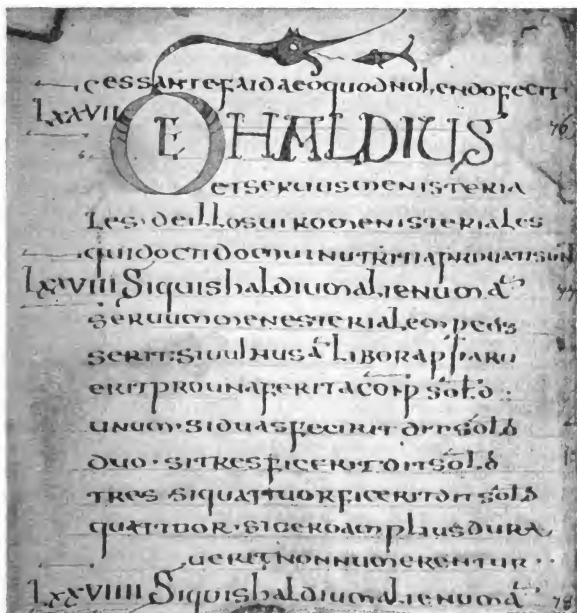 cessante faida eo quod nolendo fecit
LXXVII DE HALDIUS 76
et seruus menisteria
les · de illos uiro menisteriales
qui docti domui nutriti aprouati sun
LXXVIII Siquis haldium alienum at 77
seruum menesterialem pcus
serit: si uulnus at libor apparu
erit pro una ferita conp sold
unum · si duas fecirit dit sold
duo · si tres ficerit dit sold
tres si quattuor ficerit dit sold
quattuor · si uero amplius dura
uerit non numerentur ··
LXXVIIII Siquis haldium alienum at 78